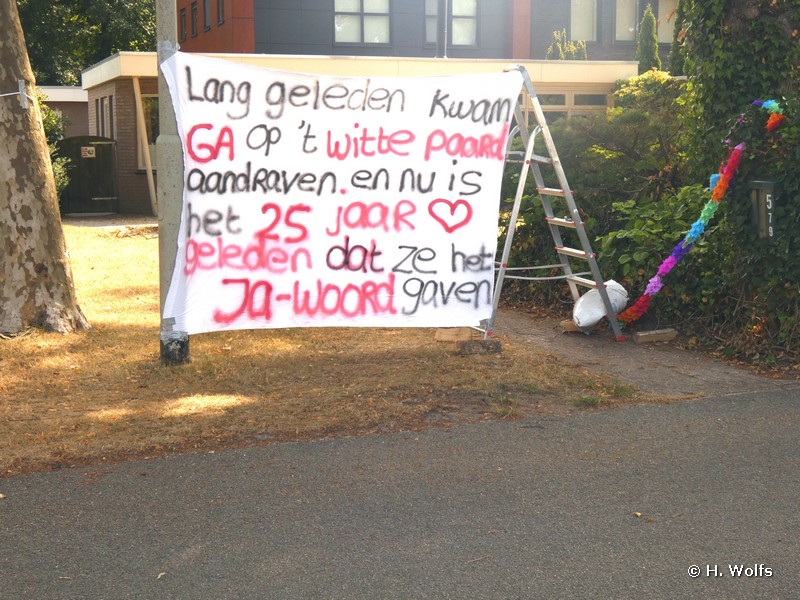 Lang geleden kwam
GA op 't witte paard
aandraven. en nu is
het 25 jaar
geleden dat ze het
JA-WOORD gaven
579
© H. Wolfs